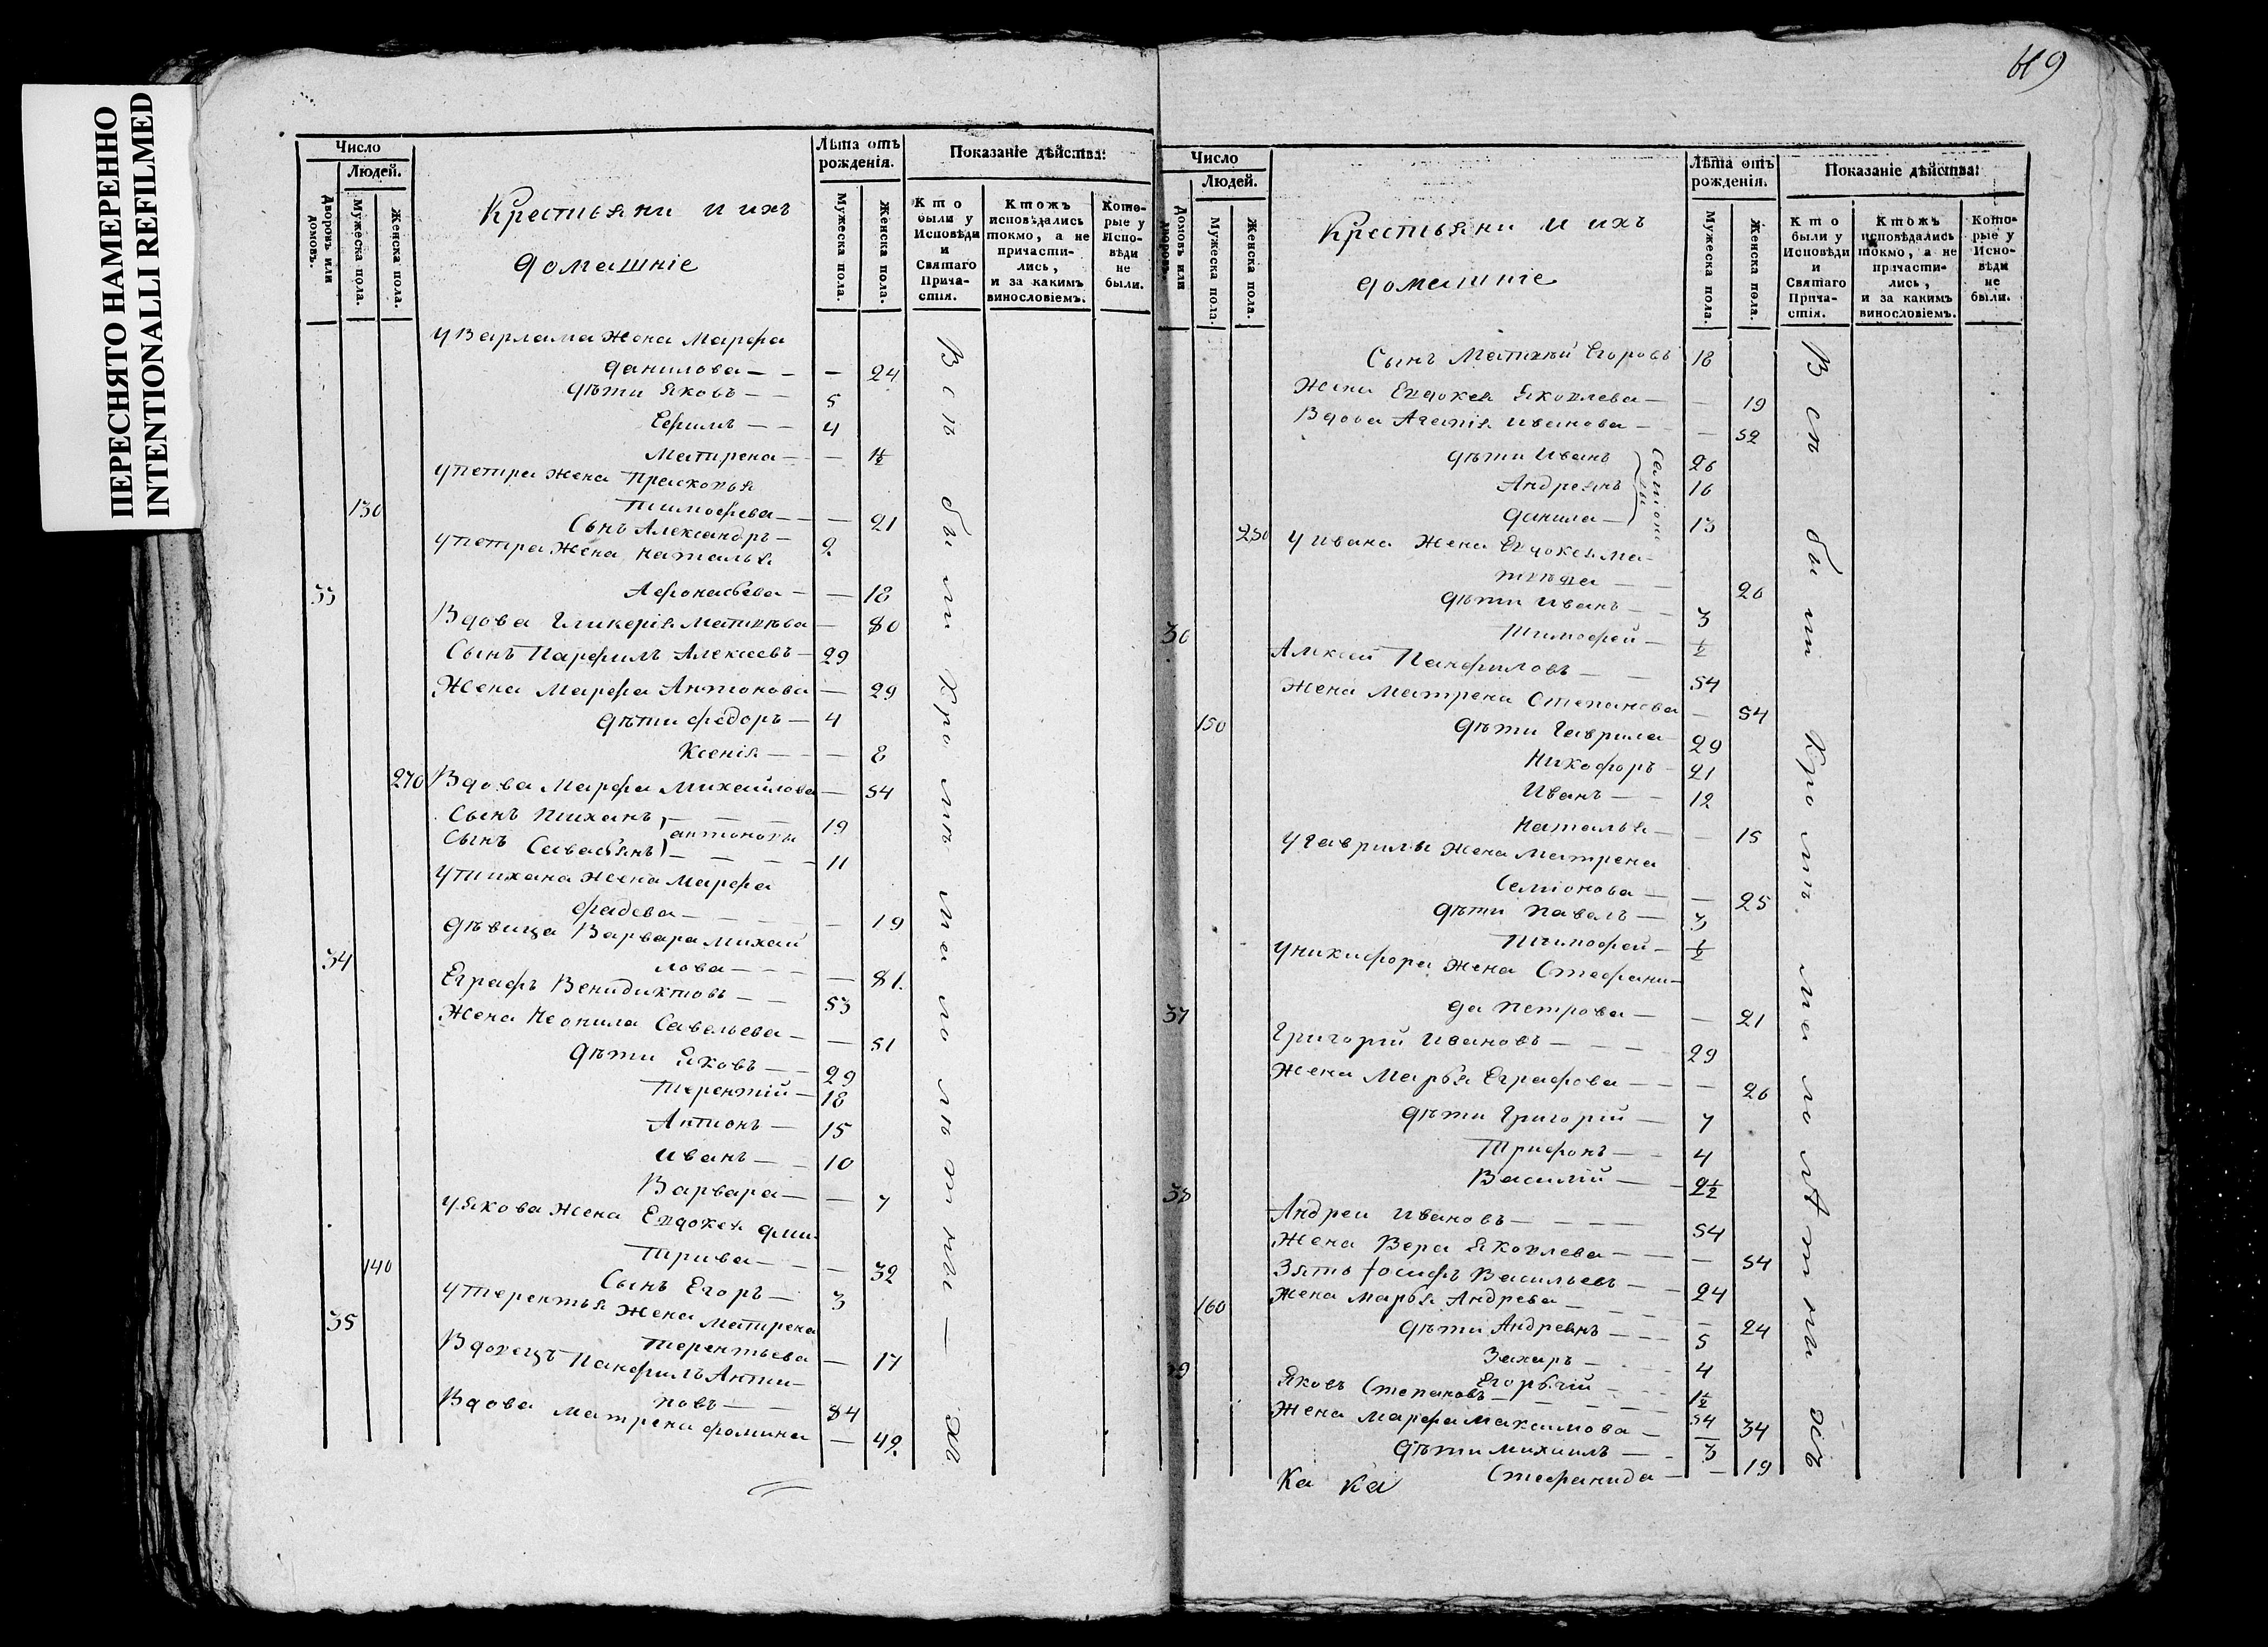 ПЕРЕСНЯТО НАМЕРЕННО
INTENTIONALLI REFILMED
Число
Людей.
Дворовъ или домовъ.
Мужеска пола.
Женска пола.
Крестьяни и ихъ
домашніе
Лѣта отъ рожденія.
Мужеска пола.
Женска пола.
Показаніе дѣйства:
Кто были у Исповѣди и Святаго Прича-стія.
Ктожъ исповѣдались токмо, а не причасти-лись, и за какимъ винословіемъ.
Кото-рые у Испо-вѣди не были.
У Варлама Жена Марфа
данилова — — — 24
дѣти Яковъ — — 5
Ефимъ — — 4
Матрена — — 1½
у петра Жена Прасковья
130 Тимофева — — 21
Сынъ Александръ — 2
у петра Жена Наталья
33 Афонасьева — — 18
Вдова Гликерія Матвѣва — 80
Сынъ Парфилъ Алексеевъ — 29
Жена Марфа Антонова — 29
дѣти федоръ — 4
Ксенія — — 8
270 Вдова Марфа Михайлова — 54
Сынъ Тиханъ — — — 19
антоновы
Сынъ Савастьянъ — — — 11
У тихана Жена Марфа
фадева — — — — 19
дѣвица Варвара михай
34 лова — — — — 81.
Еграфъ Венидиктовъ — — 53
Жена Неонила Савельева — — 51
Дѣти Яковъ — — 29
Терентій — 18
Антионъ — 15
Иванъ — — 10
Варвара — — 7
у Якова Жена Евдокея дми-
трива — — — 32
140 Сынъ Егоръ — 3
у терентья Жена Матрена
35 Терентьева — 17
Вдовецъ Панфилъ Анти-
повъ — — 84
Вдова Матрена фомина — 42
Всѣ были Кромѣ малолѣтныхъ
419
Число
Людей.
Домовъ или дворовъ.
Мужеска пола.
Женска пола.
Крестьяни и ихъ
домашніе
Лѣта отъ рожденія.
Мужеска пола.
Женска пола.
Показаніе дѣйства:
Кто были у Исповѣди и Святаго Прича-стія.
Ктожъ исповѣдались токмо, а не причасти-лись, и за какимъ винословіемъ.
Кото-рые у Испо-вѣди не были.
Сынъ Матвѣй Егоровъ 18
Жена Евдокея Яковлева — — 19
Вдова Агапія иванова — — 52
дѣти Иванъ 26
Андреянъ 16
данила — 13
Семіоновы
250 у ивана Жена Евдокея Ма-
твѣва — — 26
дѣти Иванъ — — 3
36 Тимофей — ½
Алексей Панфиловъ — — 54
Жена Матрена Степанова — 54
150 дѣти Гаврила — 29
Никофоръ — 21
Иванъ — — 12
Наталья — — 15
у Гаврилы Жена Матрена
Семіонова — — 25
дѣти Павелъ — 3
Тимофей — ½
у никифора Жена Стефани-
37 да петрова — — 21
Григорій Ивановъ — — — 29
Жена Марья Еграфова — — — 26
дѣти Григорій — 7
Трифонъ — — 4
38 Василій — — 2½
Андреи Ивановъ — — — 54
Жена Вера Яковлева — — — 54
Зять Іосифъ Васильевъ — — 24
160 Жена Марья Андрева — — — 24
дѣти Андреянъ — — — 5
Захаръ — — — 4
39 Егорьгій — — — 1½
Яковъ Степановъ — — — 54
Жена Марфа Максимова — — 34
Дѣти Михаилъ — — 3
Стефанида — — 19
Всѣ были Кромѣ малолѣтныхъ